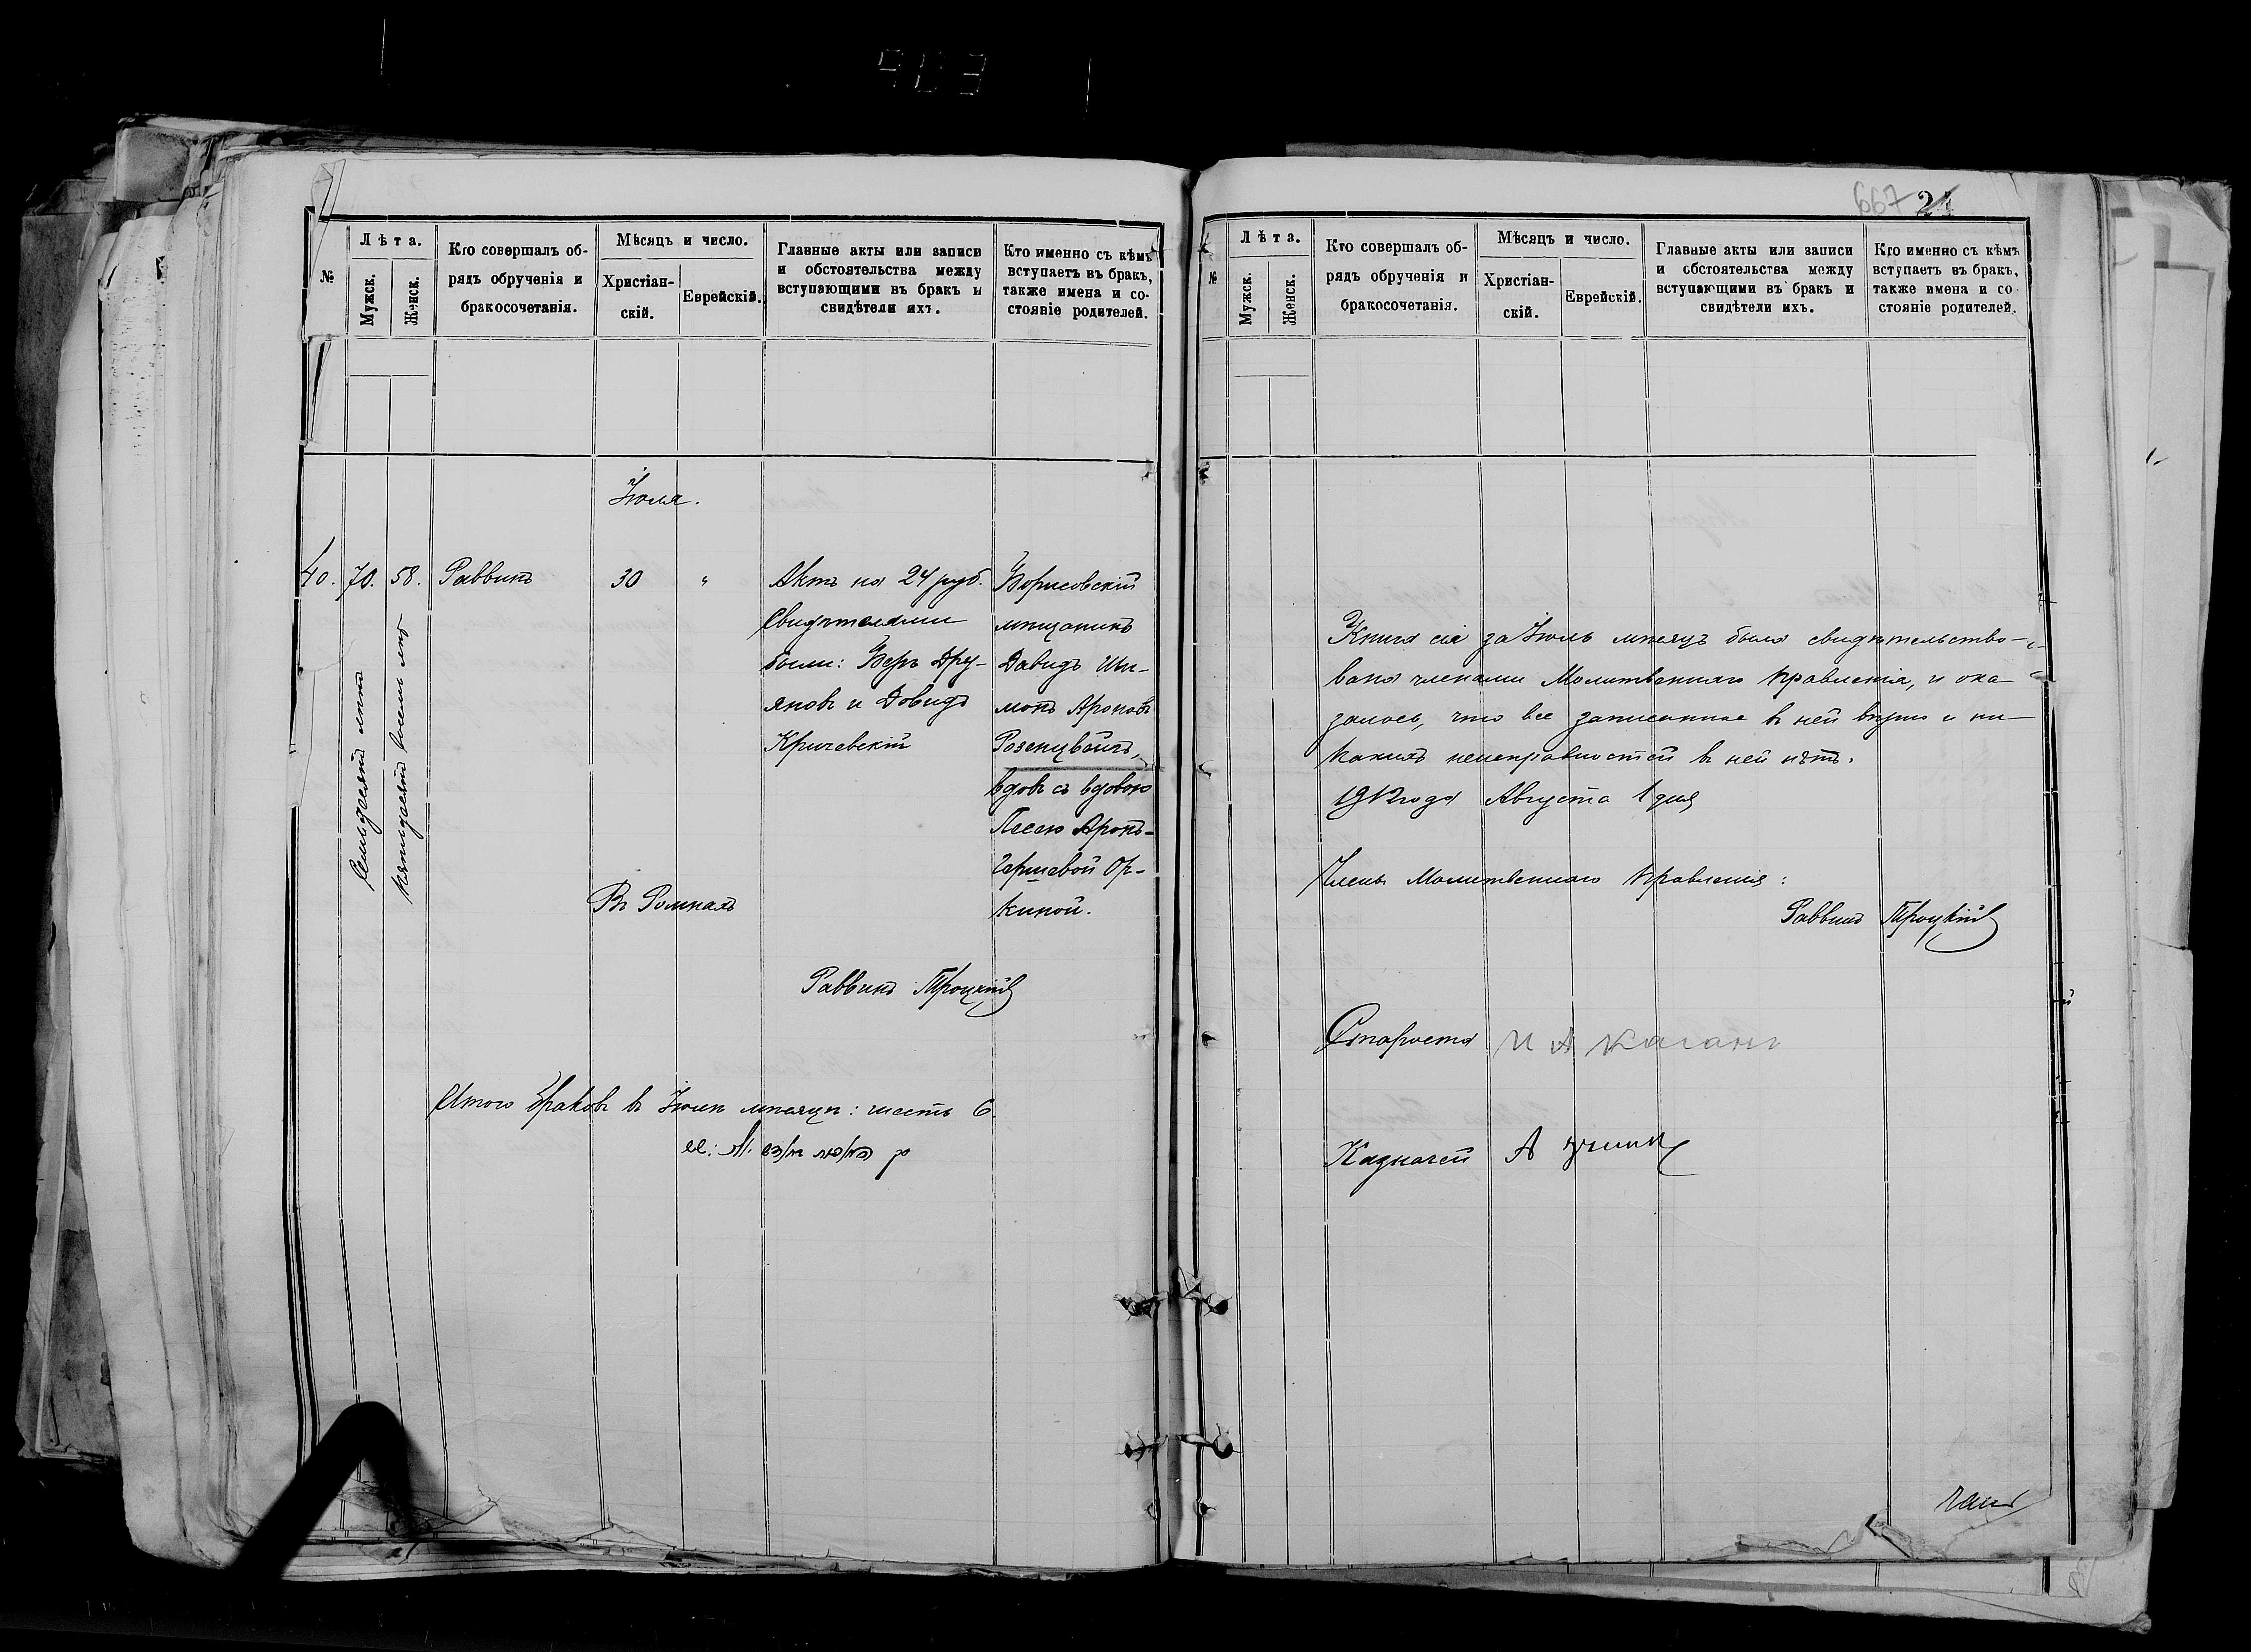 №
Лѣта.
Мужск.
Женск.
Кто совершалъ об-
рядъ обрученія и
бракосочетанія.
Мѣсяцъ и число.
Христіан-
скій.
Еврейскій.
Главные акты или записи
и обстоятельства между
вступающими въ бракъ и
свидѣтели ихъ.
Кто именно съ кѣмъ
вступаетъ въ бракъ,
также имена и со-
стояніе родителей.
Іюля.
40. 70. 58. Раввинъ 30 "
Семьдесятъ лѣтъ
пятьдесятъ восемь лѣтъ
Актъ на 24 руб.
Свидѣтелями
были: Беръ Дру-
яновъ и Довидъ
Кричевскій
Борисовскій
мѣщанинъ
Давидъ Ши-
монъ Ароновъ
Розенцвейгъ,
вдовъ съ вдовою
Песею Аронъ-
Гершевой Ор-
киной.
Въ Ромнахъ
Раввинъ Троцкій
Итого браковъ въ Іюлѣ мѣсяцѣ: шесть 6.
667 24
№
Лѣта.
Мужск.
Женск.
Кто совершалъ об-
рядъ обрученія и
бракосочетанія.
Мѣсяцъ и число.
Христіан-
скій.
Еврейскій.
Главные акты или записи
и обстоятельства между
вступающими въ бракъ и
свидѣтели ихъ.
Кто именно съ кѣмъ
вступаетъ въ бракъ,
также имена и со-
стояніе родителей.
Книга сія за Іюль мѣсяцъ была свидѣтельство-
вана членами Молитвеннаго Правленія, и ока-
залось, что все записанное въ ней вѣрно и ни-
какихъ неисправностей въ ней нѣтъ.
1912 года Августа 1 дня
Члены Молитвеннаго Правленія:
Раввинъ Троцкій
Староста И А Каганъ
Казначей А